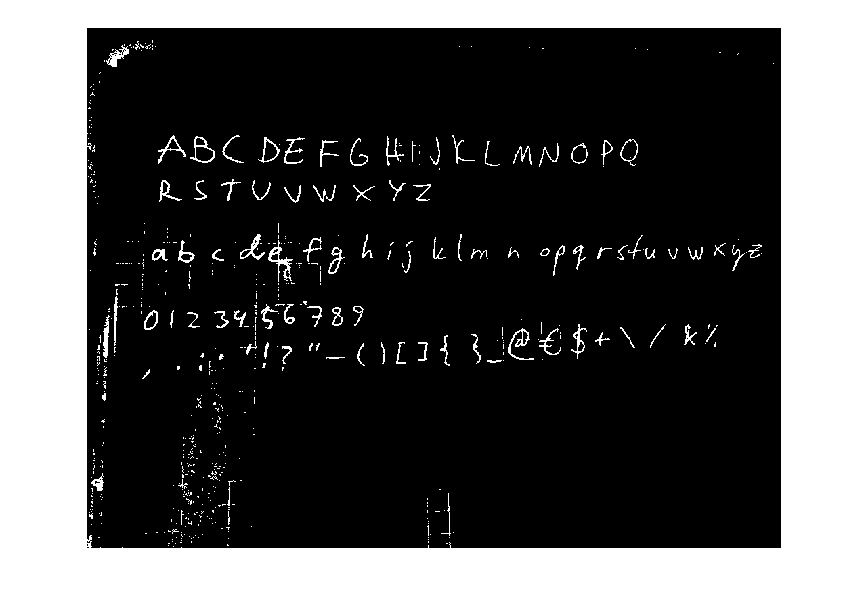 A B C D E F G H I J K L M N O P Q
R S T U V W X Y Z
a b c d e f g h i j k l m n o p q r s t u v w x y z
0 1 2 3 4 5 6 7 8 9
, . ; : ! ? " - ( ) [ ] { } _ @ € $ + \ / & %